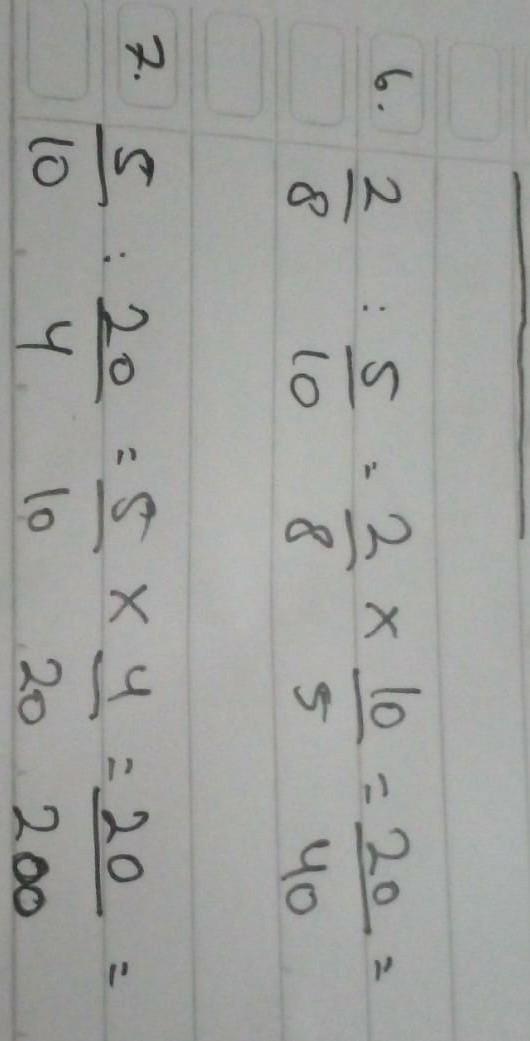 6. 2/8 : 5/10 = 2/8 × 10/5 = 20/40 =
7. 5/10 : 20/4 = 5/10 × 4/20 = 20/200 =